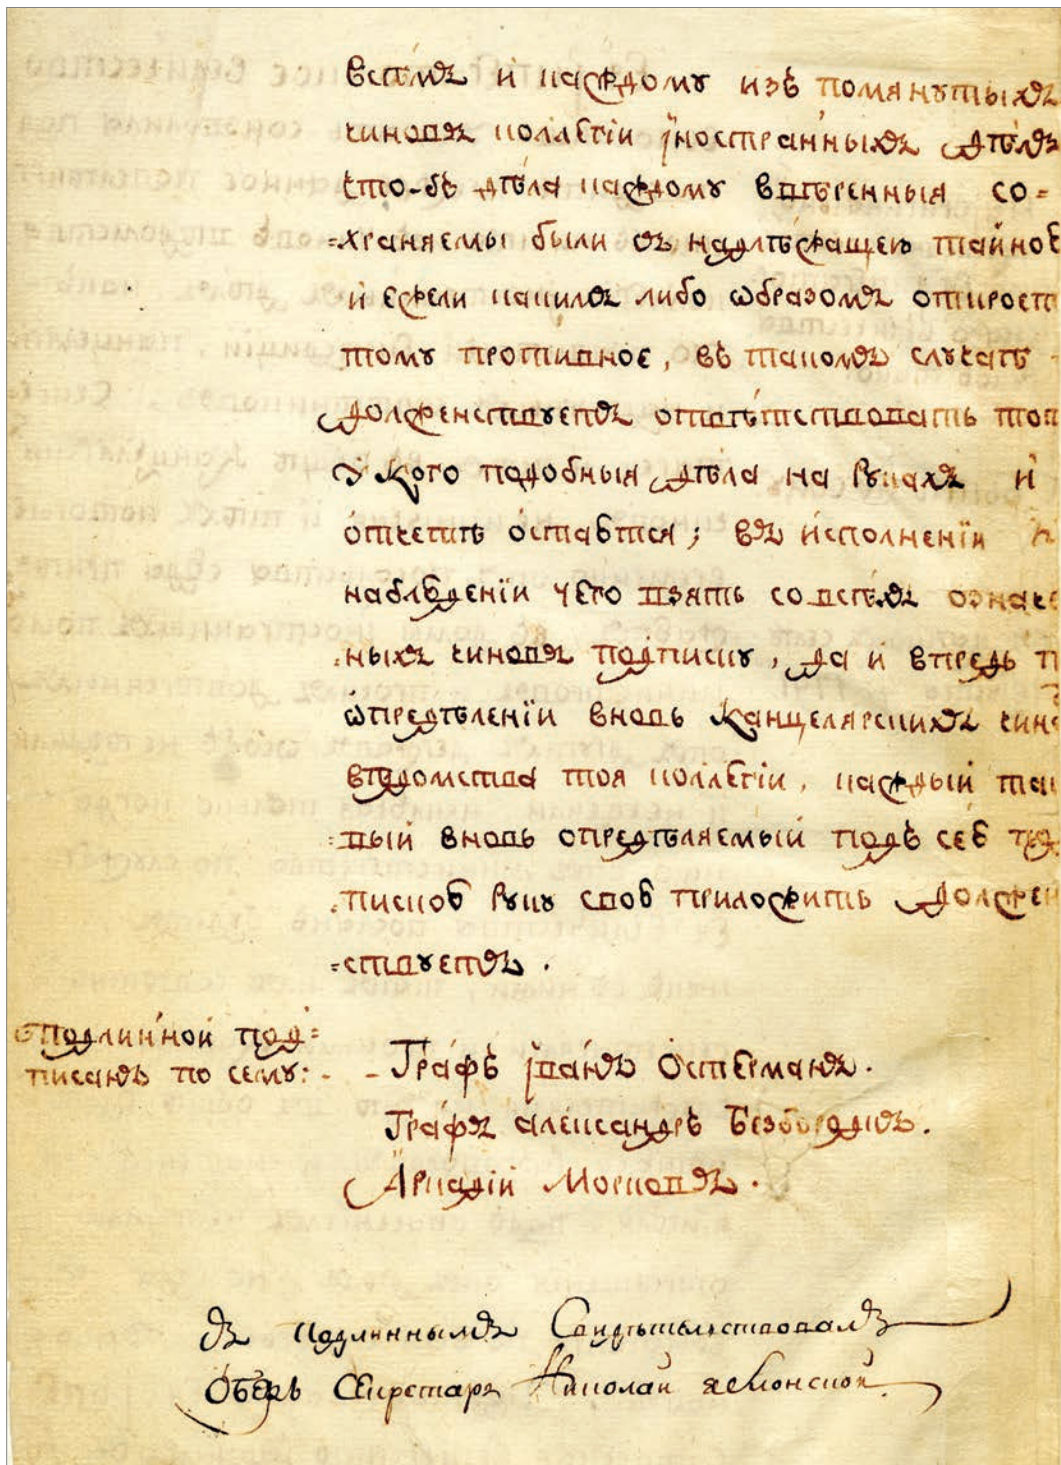 всѣмъ и каждому изъ помянутыхъ
чиновъ коллегіи іностранныхъ дѣлъ
что-бъ дѣла каждому ввѣренныя со=
=храняемы были въ надлѣжащей тайнос
и ежели какимъ либо ѡбразомъ откроет
тому противное, въ такомъ случаѣ
долженствуетъ отвѣтствовать тот
у кого подобныя дѣла на рукахъ и
отчетѣ остаются; въ исполненіи
наблюденіи чего взять со всѣхъ означе
=ныхъ чиновъ подписку, да и впредь п
ѡпредѣленіи вновь канцелярскихъ чин
вѣдомства тоя коллегіи, каждый так
=вый вновь опредѣляемый подъ сею под
=пискою руку свою приложить должен
=ствуетъ.
Подлинной под=
писанъ по сему: - - Графъ Іванъ Остерманъ.
Графъ Александръ Безбородкъ.
Аркадій Морковъ.
Съ подлиннымъ Свидѣтельствовалъ
Оберъ Секретарь Николай Яблонской